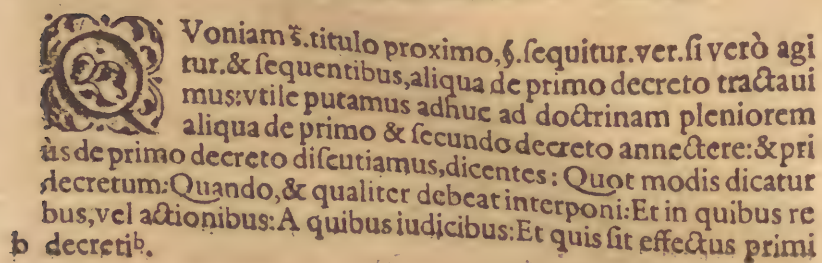 QVoniam s̄.titulo proximo,§.ſequitur.ver.ſi verò agi
tur.& ſequentibus,aliqua de primo decreto tractaui
mus:vtile putamus adhuc ad doctrinam pleniorem
aliqua de primo & ſecundo decreto annectere:& pri
ùs de primo decreto diſcutiamus,dicentes: Quot modis dicatur
decretum:Quando,& qualiter debeat interponi:Et in quibus re
bus,vel actionibus:A quibus iudicibus:Et quis ſit effectus primi
b decretiᵇ.